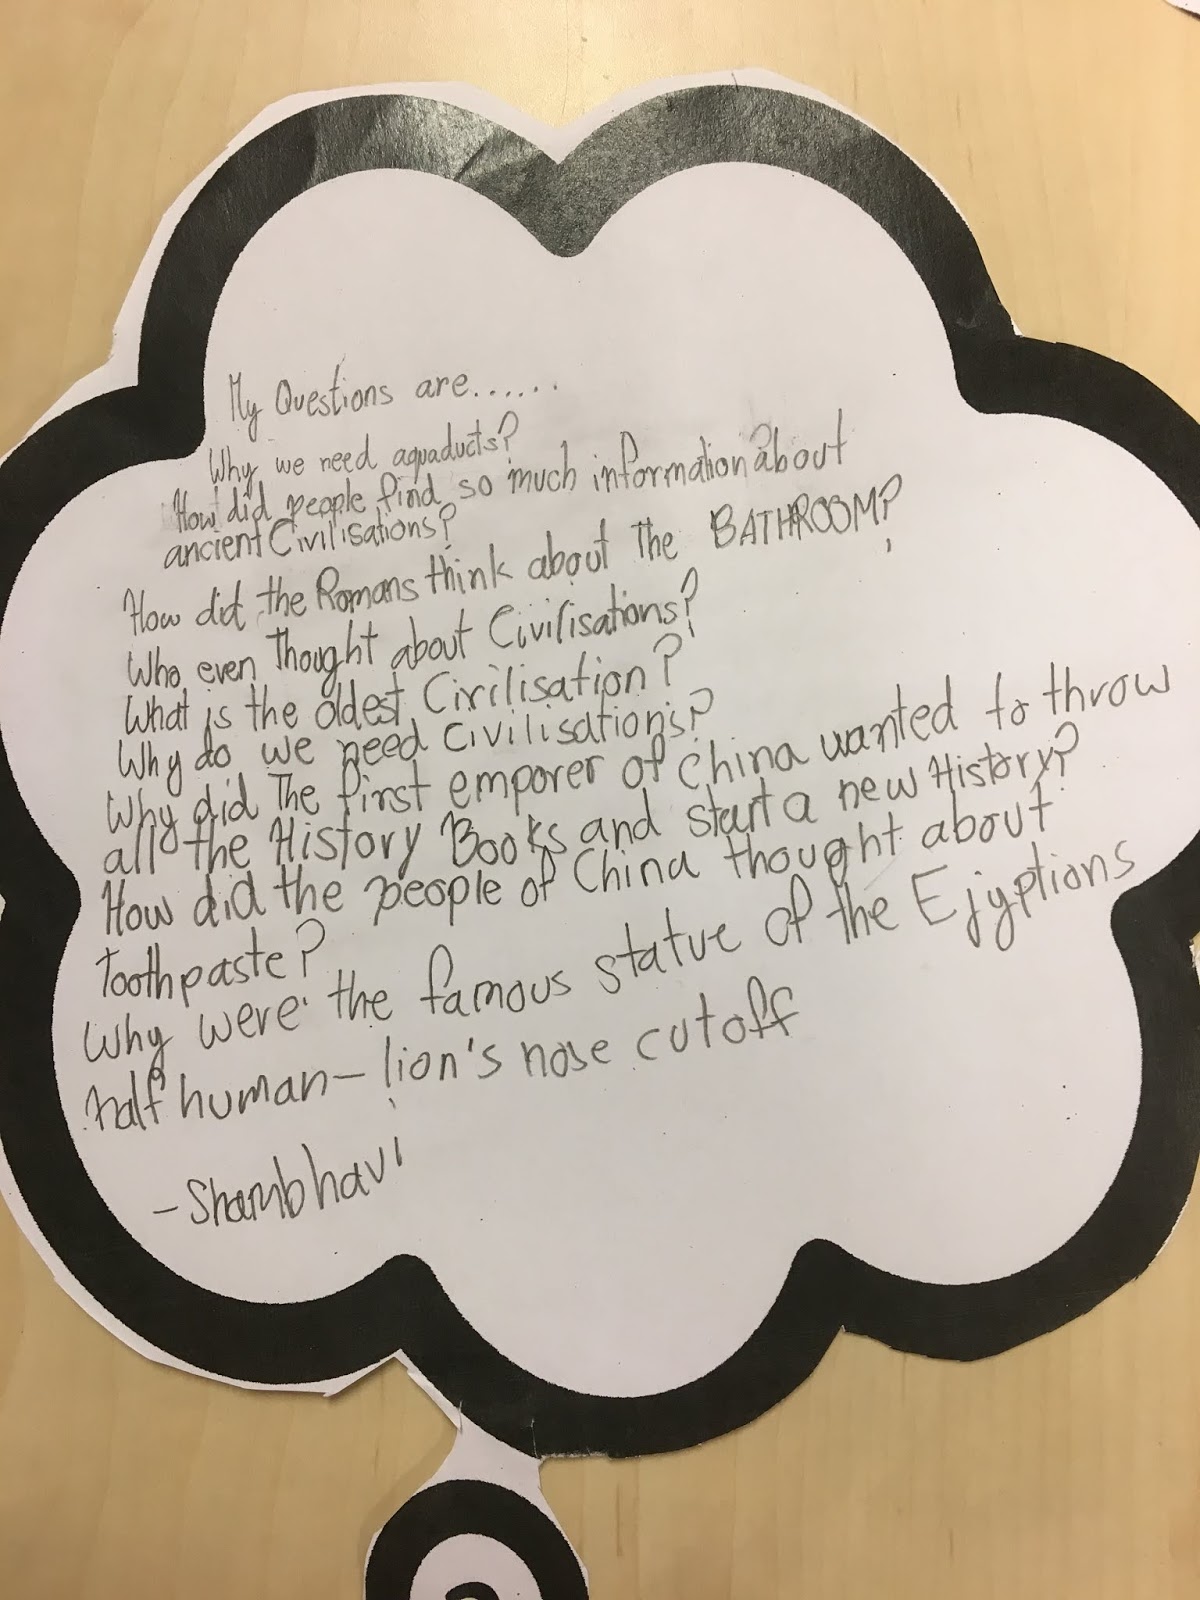 My Questions are......
Why we need aquaducts?
How did people find so much information about
ancient Civilisations?
How did the Romans think about The BATHROOM?
Who even Thought about Civilisations?
What is the oldest Civilisation?
Why do we need Civilisations?
Why did The first emporer of China wanted to throw
all the History Books and start a new History?
How did the people of China thought about
Toothpaste?
Why were the famous statue of the Ejyptions
half human-lion's nose cutoff
- Shambhavi